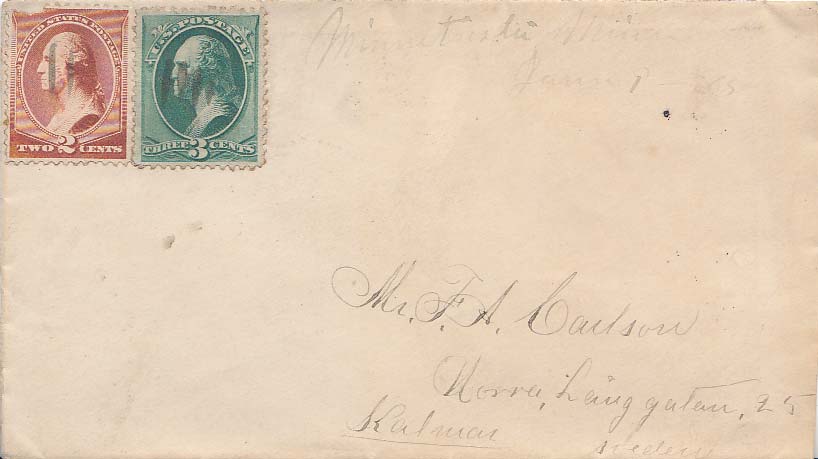 UNITED STATES POSTAGE
TWO 2 CENTS
U.S. POSTAGE
THREE 3 CENTS
Mr. F. A. Carlson
Norra Långgatan, 25
Kalmar
Sweden